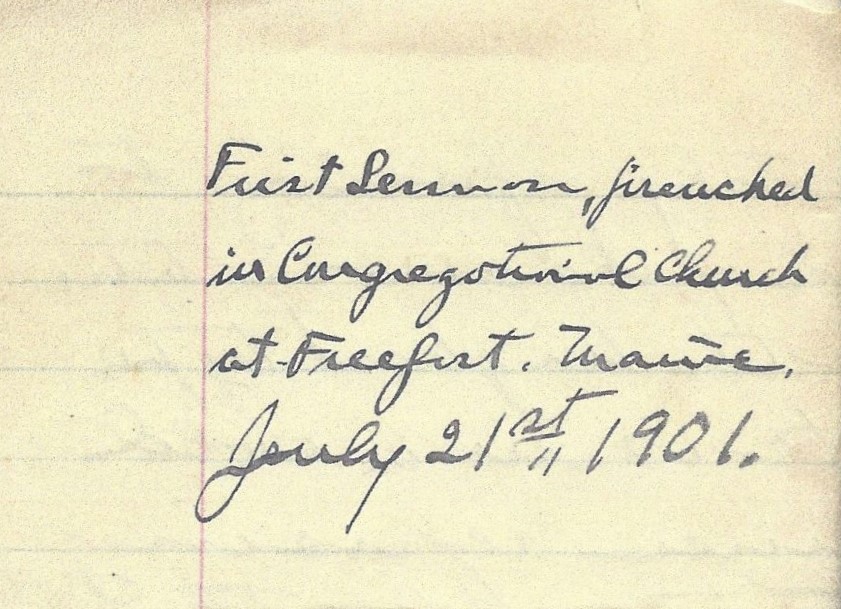 First Sermon, preached
in Congregational Church
at Freeport, Maine.
July 21st 1901.